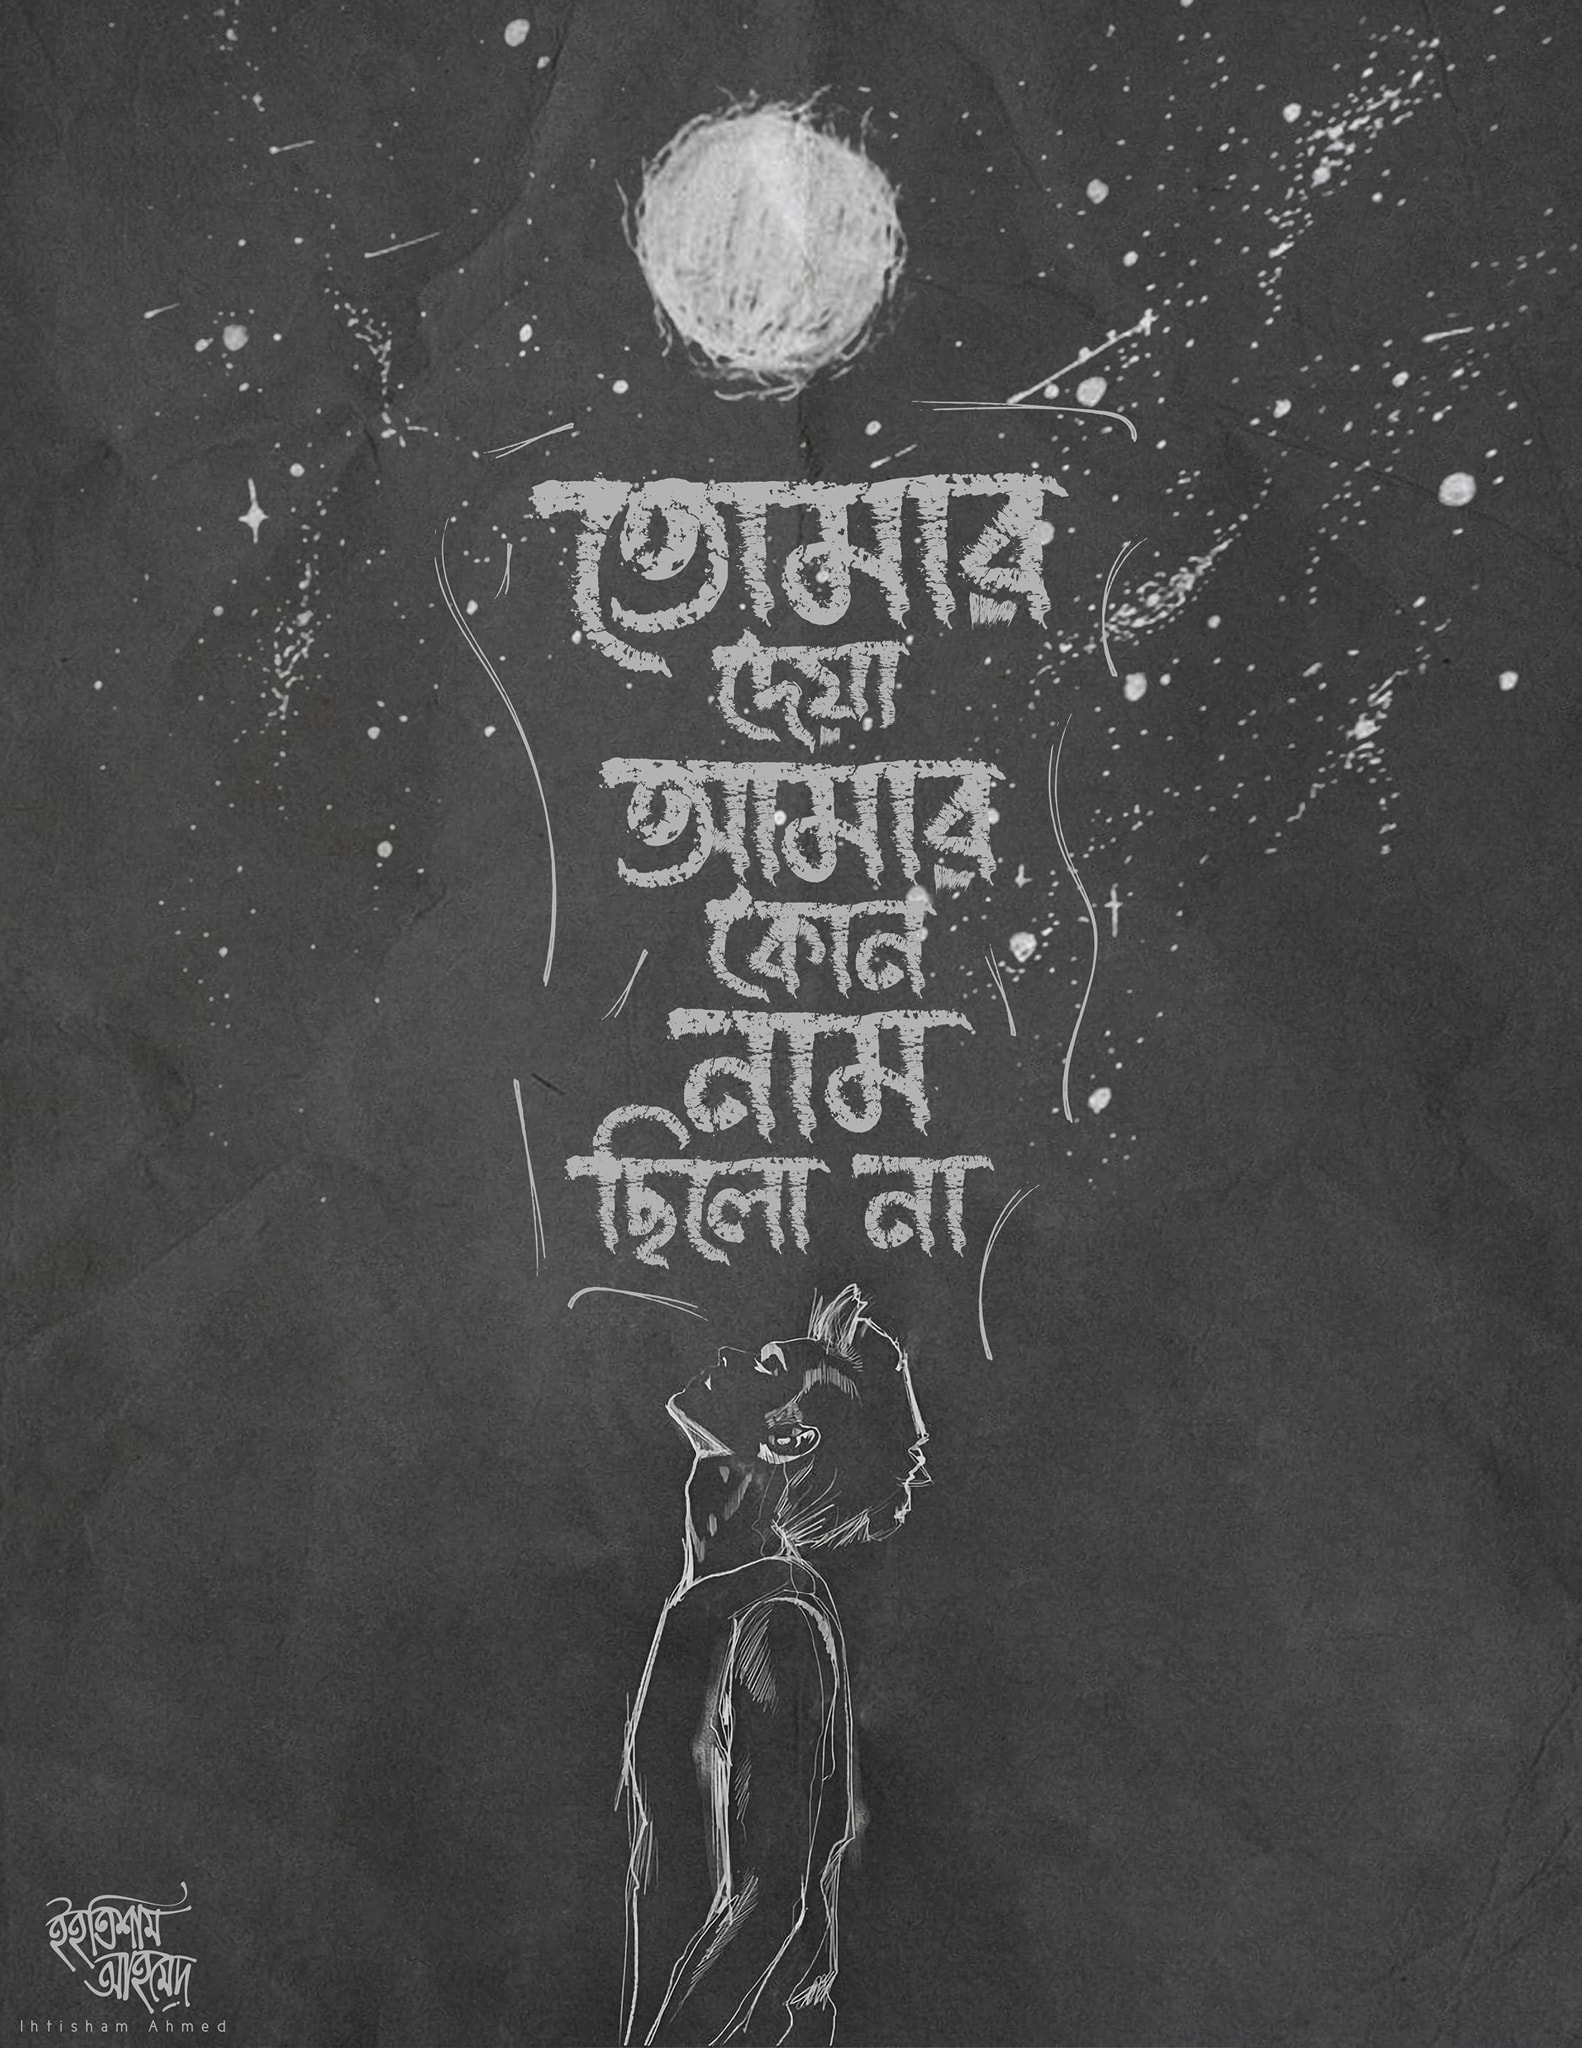 তোমার
দেয়া
আমার
কোন
নাম
ছিলো না
ইহতিশাম
আহমেদ
Ihtisham Ahmed